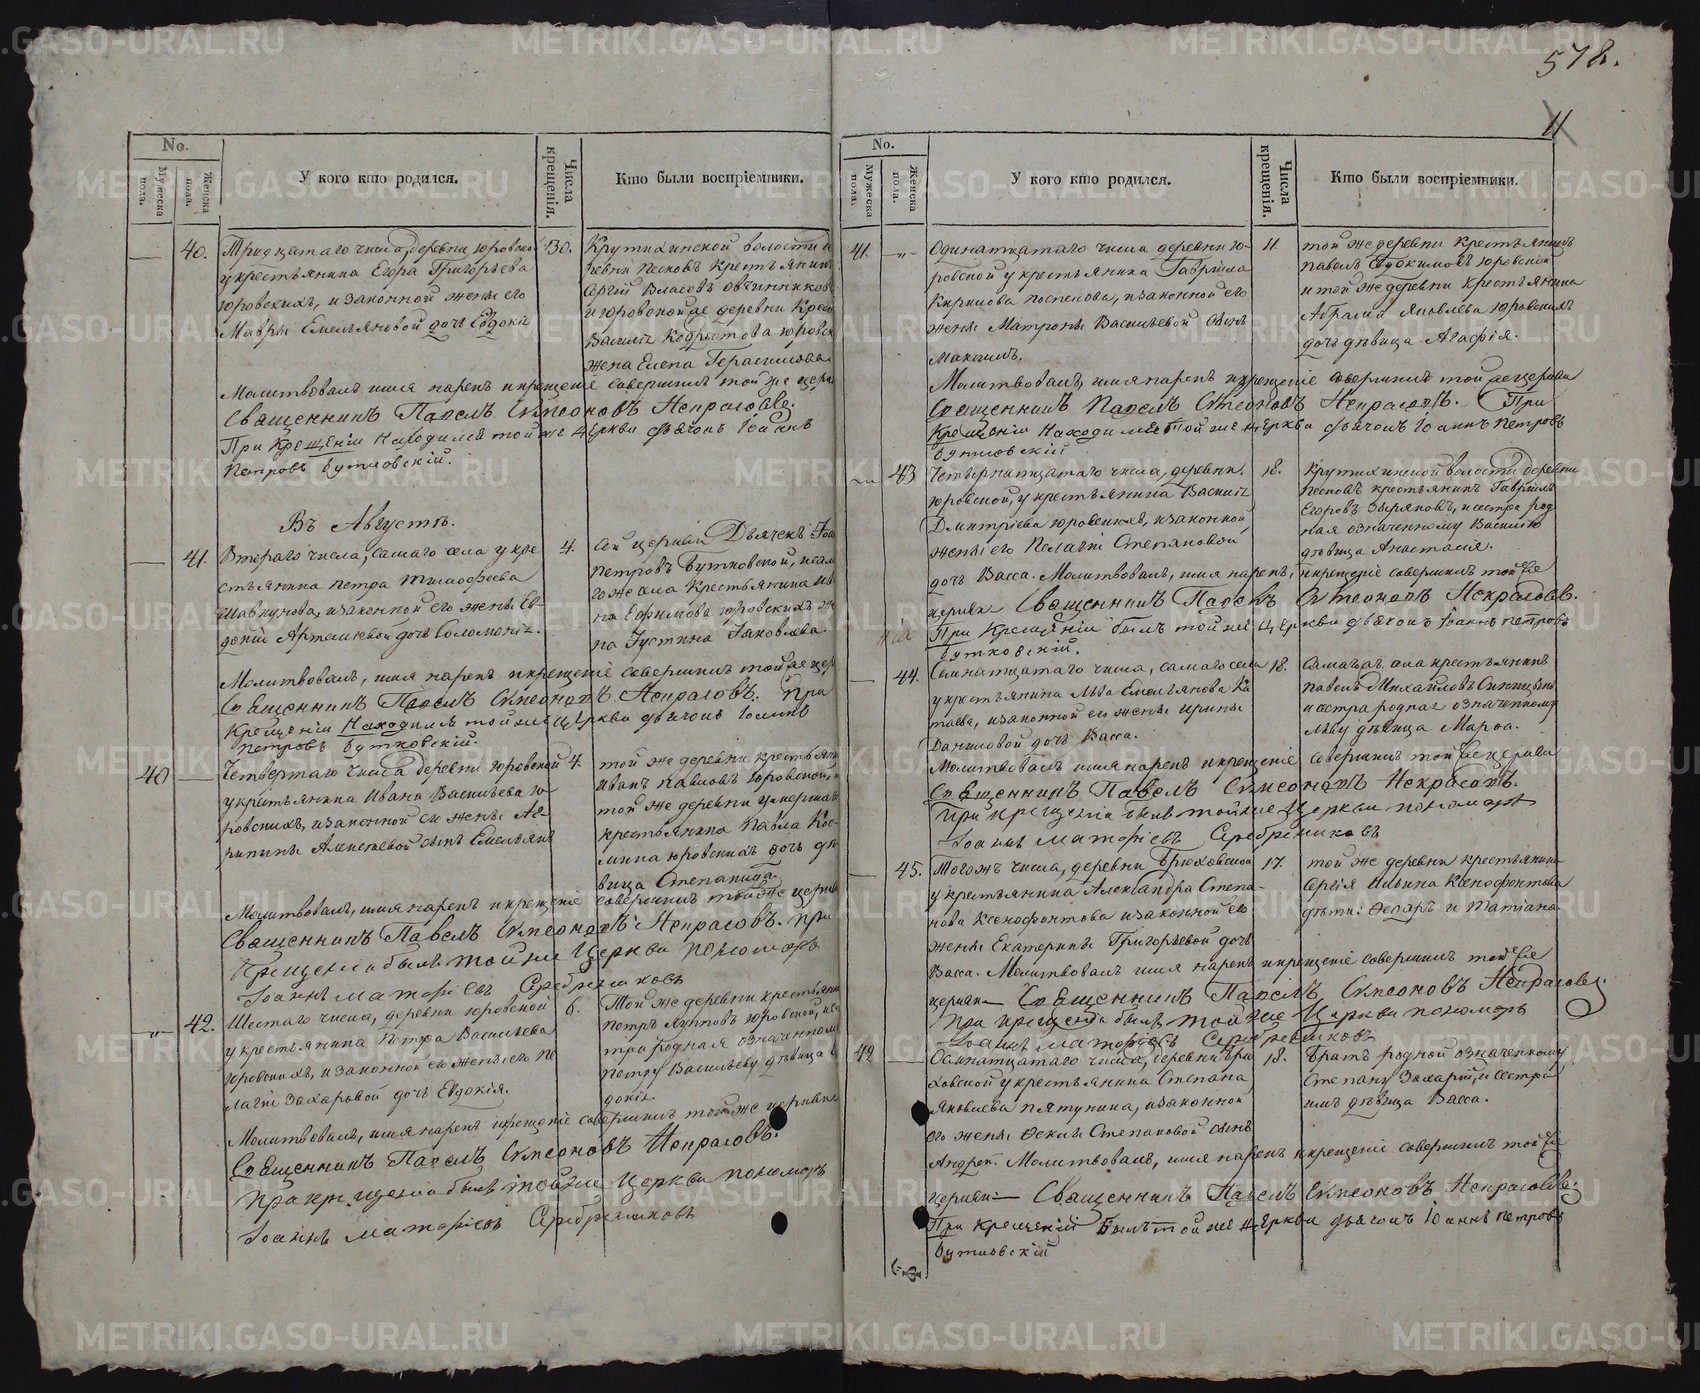 578.
11
No.
Мужеска пола.
Женска пола.
У кого кто родился.
Числа крещенія.
Кто были воспріемники.
40.
Тридцатаго числа, деревни Юровской
у крестьянина Егора Григорьева
Юровскихъ, и законной жены его
Мавры Емельяновой дочь Евдокія
30.
Крутихинской волости де
ревни Песковъ крестьянинъ
Сергій Власовъ Овчинников
и Юровской же деревни крест
жена Елена Герасимова
Молитвовалъ имя нарекъ и крещеніе совершилъ той же церк
Священникъ Павелъ Симеоновъ Некрасовъ.
При крещеніи находился той же церкви дьячокъ Іоаннъ
Петровъ Бутковскій.
Въ Августѣ.
41.
Втораго числа, самаго села у кре
стьянина Петра Тимофеева
и законной его жены Ев
докіи дочь Соломонія.
4.
сей церкви Дьячекъ Іоа
Петровъ Бутковской, и сам
го же села крестьянина Ив
на Ефимова Юровскихъ же
на Устинья Яковлева.
Молитвовалъ, имя нарекъ и крещеніе совершилъ той же цер
Священникъ Павелъ Симеоновъ Некрасовъ. При
крещеніи находился той же церкви дьячокъ Іоаннъ
Петровъ Бутковскій.
40
Четвертаго числа деревни Юровской
у крестьянина Ивана Васильева Ю-
ровскихъ, и законной его жены Аг-
рипины Алексѣевой сынъ Емельянъ
4.
той же деревни крестьяни
Иванъ Павловъ Юровской, и
той же деревни умершаго
крестьянина Павла Кос-
мина Юровскихъ дочь дѣ
вица Степанида.
Молитвовалъ, имя нарекъ и крещеніе совершилъ той же церкви
Священникъ Павелъ Симеоновъ Некрасовъ. При
крещеніи былъ той же церкви пономарь
Іоаннъ Серебренниковъ
42.
Шестаго числа, деревни Юровской
у крестьянина Петра Васильева
Юровскихъ, и законной его жены его Пе
лагіи Захаровой дочь Евдокія.
6.
Той же деревни крестьянин
Петръ Юровской, и сес
тра родная означенному
Петру Васильеву дѣвица Ев
докія.
Молитвовалъ, имя нарекъ и крещеніе совершилъ той же церкви
Священникъ Павелъ Симеоновъ Некрасовъ.
При крещеніи былъ той же церкви пономарь
Іоаннъ Серебренниковъ
No.
Мужеска пола.
Женска пола.
У кого кто родился.
Числа крещенія.
Кто были воспріемники.
41.
Одинатцатаго числа деревни Ю-
ровской у крестьянина Гавріила
Кирилова Поспелова, и законной его
жены Матроны Васильевой сынъ
Максимъ.
11.
той же деревни крестьянинъ
Павелъ Евдокимовъ Юровской
и той же деревни крестьянина
Абрама Яковлева Юровскихъ
дочь дѣвица Агафія.
Молитвовалъ, имя нарекъ и крещеніе совершилъ той же церкви
Священникъ Павелъ Симеоновъ Некрасовъ. При
крещеніи находился той же церкви дьячокъ Іоаннъ Петровъ
Бутковскій
43
Четырнатцатаго числа, деревни
Юровской, у крестьянина Василія
Дмитріева Юровскихъ, и законной
жены его Пелагіи Степановой
дочь Васса. Молитвовалъ, имя нарекъ, и крещеніе совершилъ той же
18.
Крутихинской волости деревни
Песковъ крестьянинъ Гавріилъ
Егоровъ Зыряновъ, и сестра род
ная означенному Василію
дѣвица Анастасія.
церкви Священникъ Павелъ Симеоновъ Некрасовъ.
При крещеніи былъ той же церкви дьячокъ Іоаннъ Петровъ
Бутковскій.
44.
Семнатцатаго числа, самаго села
у крестьянина Льва Емельянова Ка
таева, и законной его жены Ирины
Даниловой дочь Васса.
18.
Самаго села крестьянинъ
Павелъ Михайловъ Синицынъ
и сестра родная означенному
Льву дѣвица Марѳа.
Молитвовалъ имя нарекъ и крещеніе совершилъ той же церкви
Священникъ Павелъ Симеоновъ Некрасовъ.
При крещеніи былъ той же церкви пономарь
Іоаннъ Серебренниковъ
45.
Тогожъ числа, деревни Брюховской
у крестьянина Александра Степа-
нова Ксенофонтова и законной его
жены Екатерины Григорьевой дочь
Васса. Молитвовалъ имя нарекъ и крещеніе совершилъ той же
17.
той же деревни крестьянина
Сергія Ильина Ксенофонтова
дѣти: Ѳедоръ и Татіана.
церкви Священникъ Павелъ Симеоновъ Некрасовъ.
При крещеніи былъ той же церкви пономарь
Іоаннъ Серебренниковъ
42
Осмнатцатаго числа, деревни Брю
ховской у крестьянина Степана
Яковлева Пятунина, и законной
его жены Ѳеклы Степановой сынъ
Андрей. Молитвовалъ, имя нарекъ и крещеніе совершилъ той же
18.
Братъ родной означенному
Степану Захарій, и сестра
имъ дѣвица Васса.
церкви Священникъ Павелъ Симеоновъ Некрасовъ.
При крещеніи былъ той же церкви дьячокъ Іоаннъ Петровъ
Бутковскій
METRIKI.GASO-URAL.RU